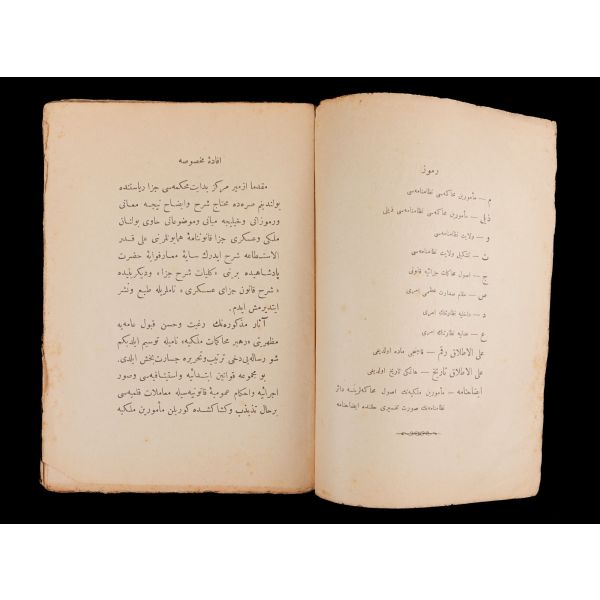 رموز
م — مأمورین محاکمه‌سی نظامنامه‌سی
ذیل — مأمورین محاکمه‌سی نظامنامه‌سی ذیلی
و — ولایت نظامنامه‌سی
ت — تشکیل ولایت نظامنامه‌سی
ج — اصول محاکمات جزائیه قانونی
ص — مقام صدارت عظمی امری
د — داخلیه نظارتنك امری
ع — عدلیه نظارتنك امری
علی الاطلاق رقم — قانجی ماده اولدیغی
علی الاطلاق تاریخ — هانکی تاریخ اولدیغی
ایضاحنامه — مأمورین ملکیه‌نك اصول محاکمه‌لرینه دائر
نظامنامه‌نك صورت تفسیری حقنده ایضاحنامه
افادهٔ مخصوصه
مقدما ازمیر مرکز بدایت محکمه‌سی جزا ریاستنده
بولندیغم صره‌ده محتاج شرح وایضاح نیجه معانی
ورموزاتی وخیلیجه مبانی وموضوعاتی حاوی بولنان
ملکی وعسکری جزا قانوننامهٔ همایونلرینی علی قدر
الاستطاعه شرح ایدرك سایهٔ معارفوایهٔ حضرت
پادشاهیده برنی «کلیات شرح جزا» ودیکریلیده
«شرح قانون جزای عسکری» ناملریله طبع ونشر
ایتدیرمش ایدم.
آثار مذکوره‌نك رغبت وحسن قبول عامه‌یه
مظهریتی «رهبر محاکمات ملکیه» نامیله توسیم ایلدیکم
شو رساله‌یی دخی ترتیب وتحریره جسارت‌بخش ایلدی.
بو مجموعه قوانین ابتدائیه واستینافیه‌سی وصور
اجرائیه واحکام عمومیهٔ قانونیه‌سیله معاملات قلمیه‌سی
برحال تذبذب وکشاکشده کوریلن مأمورین ملکیه